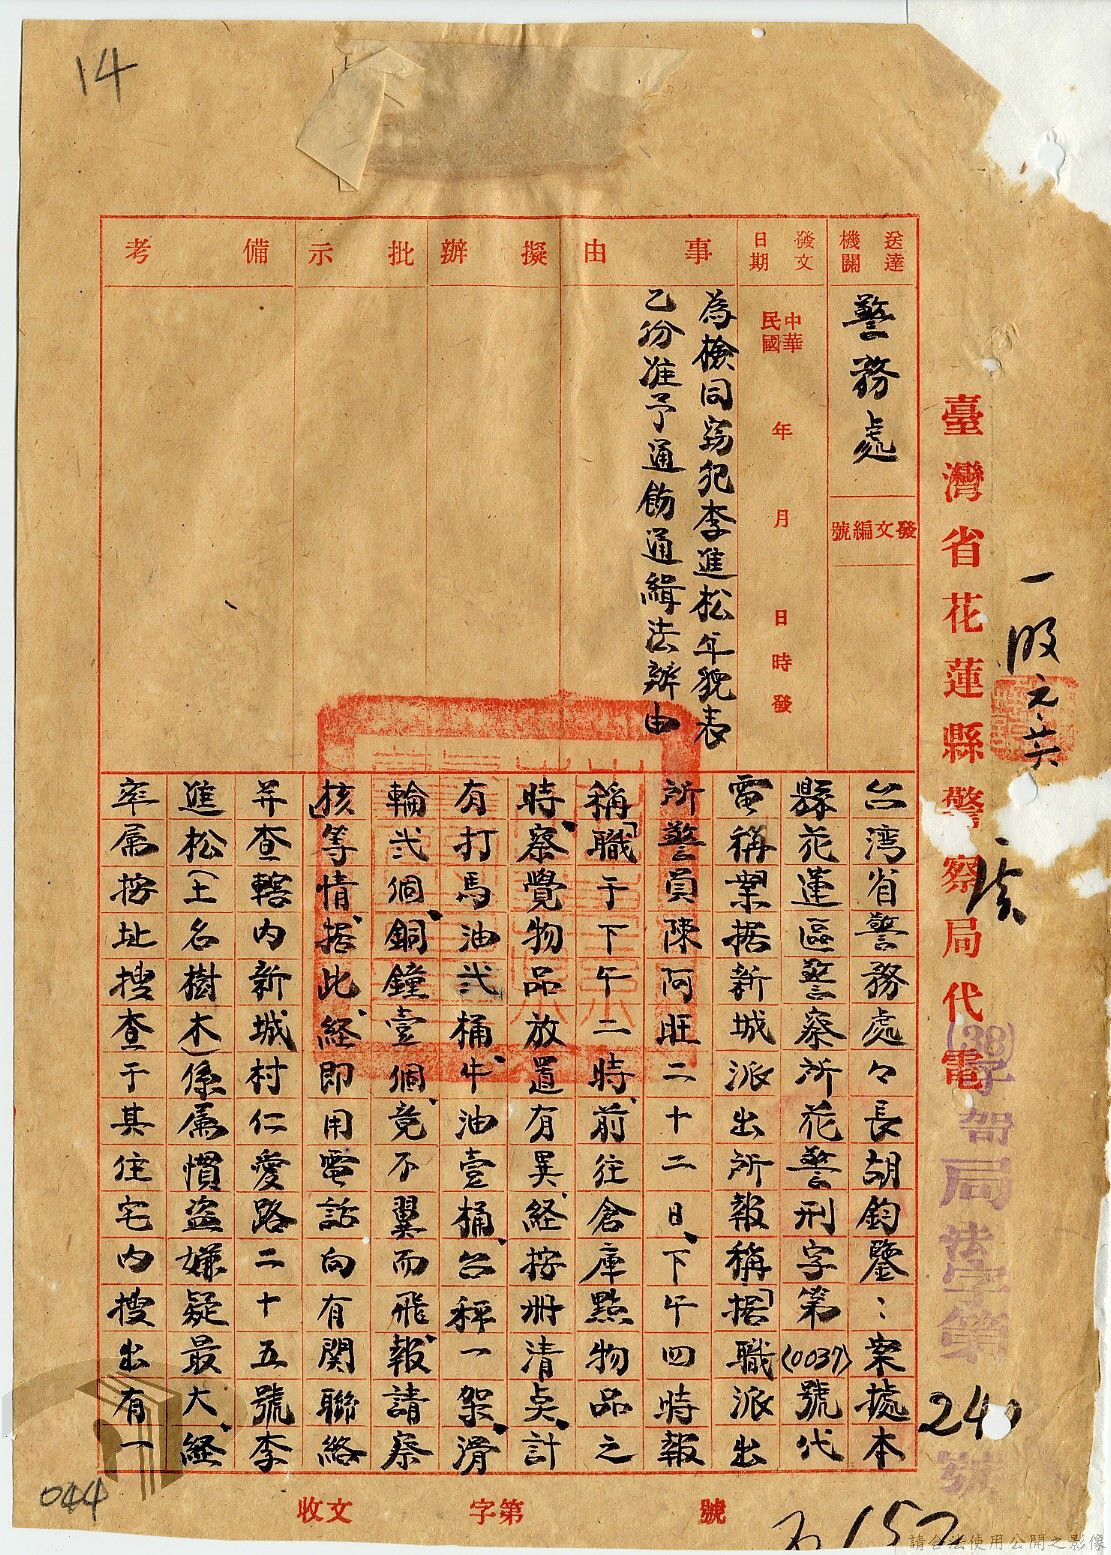 14
臺灣省花蓮縣警察局代電
(38)
局法字第
240
號
送達機關
警務處
發文編號
發文日期
中華民國 年 月 日 時發
事由
為檢同竊犯李進松年貌表
乙份准予通飭通緝法辦由
擬辦
批示
備考
台湾省警務處々長胡鈞鑒：案據本
縣花蓮區警察所花警刑字第(0037)號代
電稱案据新城派出所報稱「据職派出
所警員陳阿旺二十二日、下午四時報
稱「職于下午二時、前往倉庫點物品之
時、察覺物品放置有異、經按册清点、計
有打馬油弍桶、牛油壹桶、台秤一架、滑
輪弍個、銅鐘壹個、竟不翼而飛、報請察
核」等情、据此、経即用電話向有関聯絡
并查轄内新城村仁愛路二十五號李
進松(土名樹木)係属慣盗嫌疑最大、経
率属按址搜查于其住宅内搜出有一
收文 字第 號
044
請合法使用公開之影像